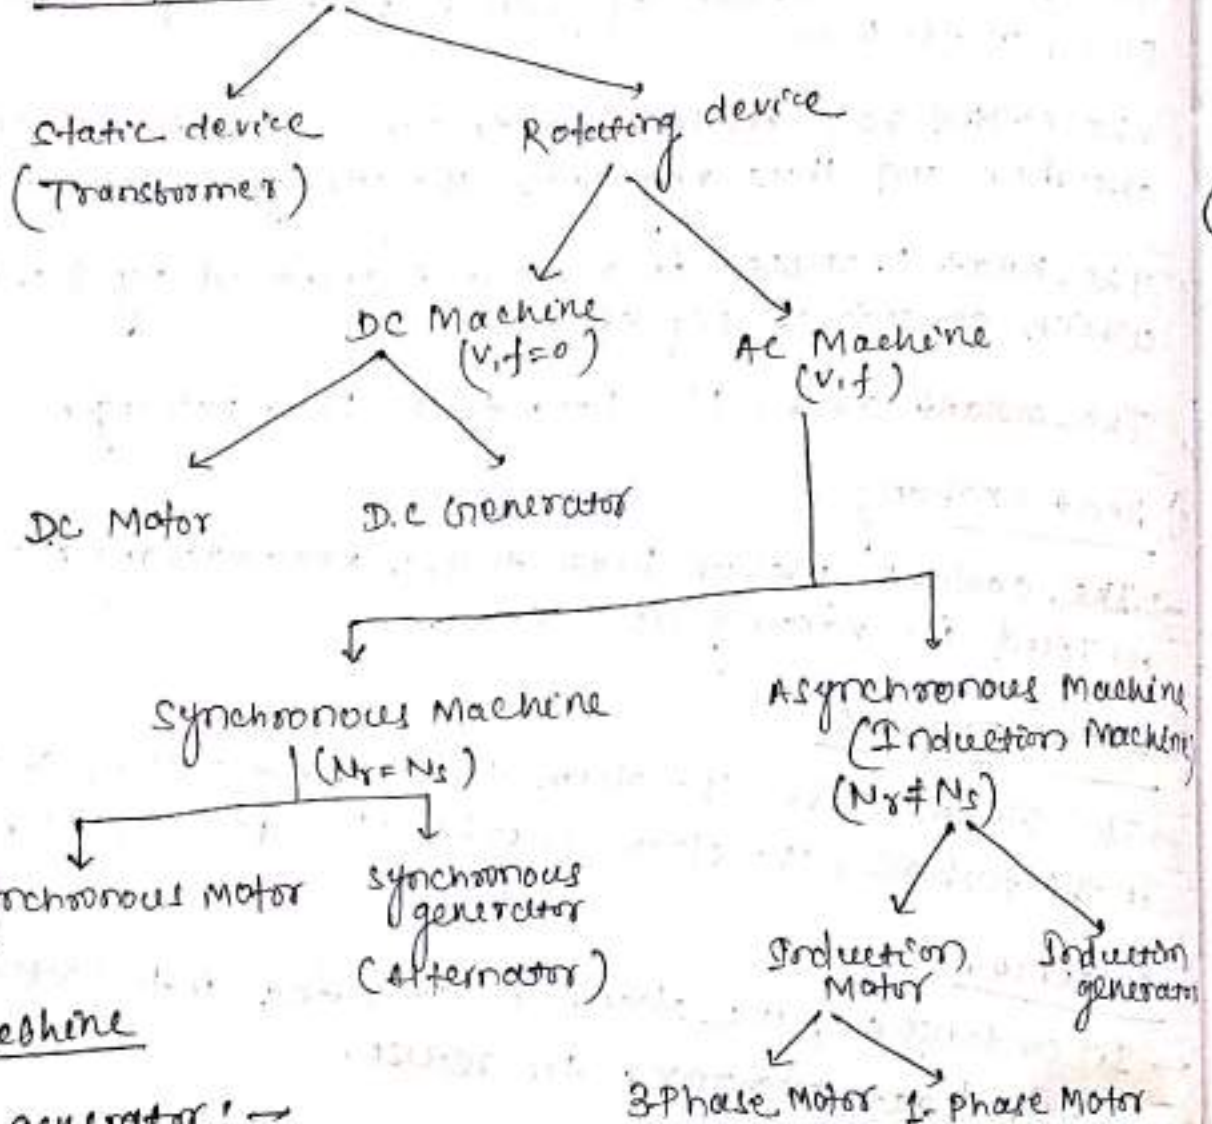 Static device
Rotating device
(Transformer)
DC Machine
(V, f=0)
AC Machine
(V, f)
DC Motor
D.C Generator
Synchronous Machine
(Nr = Ns)
Asynchronous Machine
(Induction Machine
(Nr ≠ Ns)
nchronous Motor
synchronous
generator
(Alternator)
Induction
Motor
Induction
generator
3-Phase Motor
1- phase Motor
generator: →